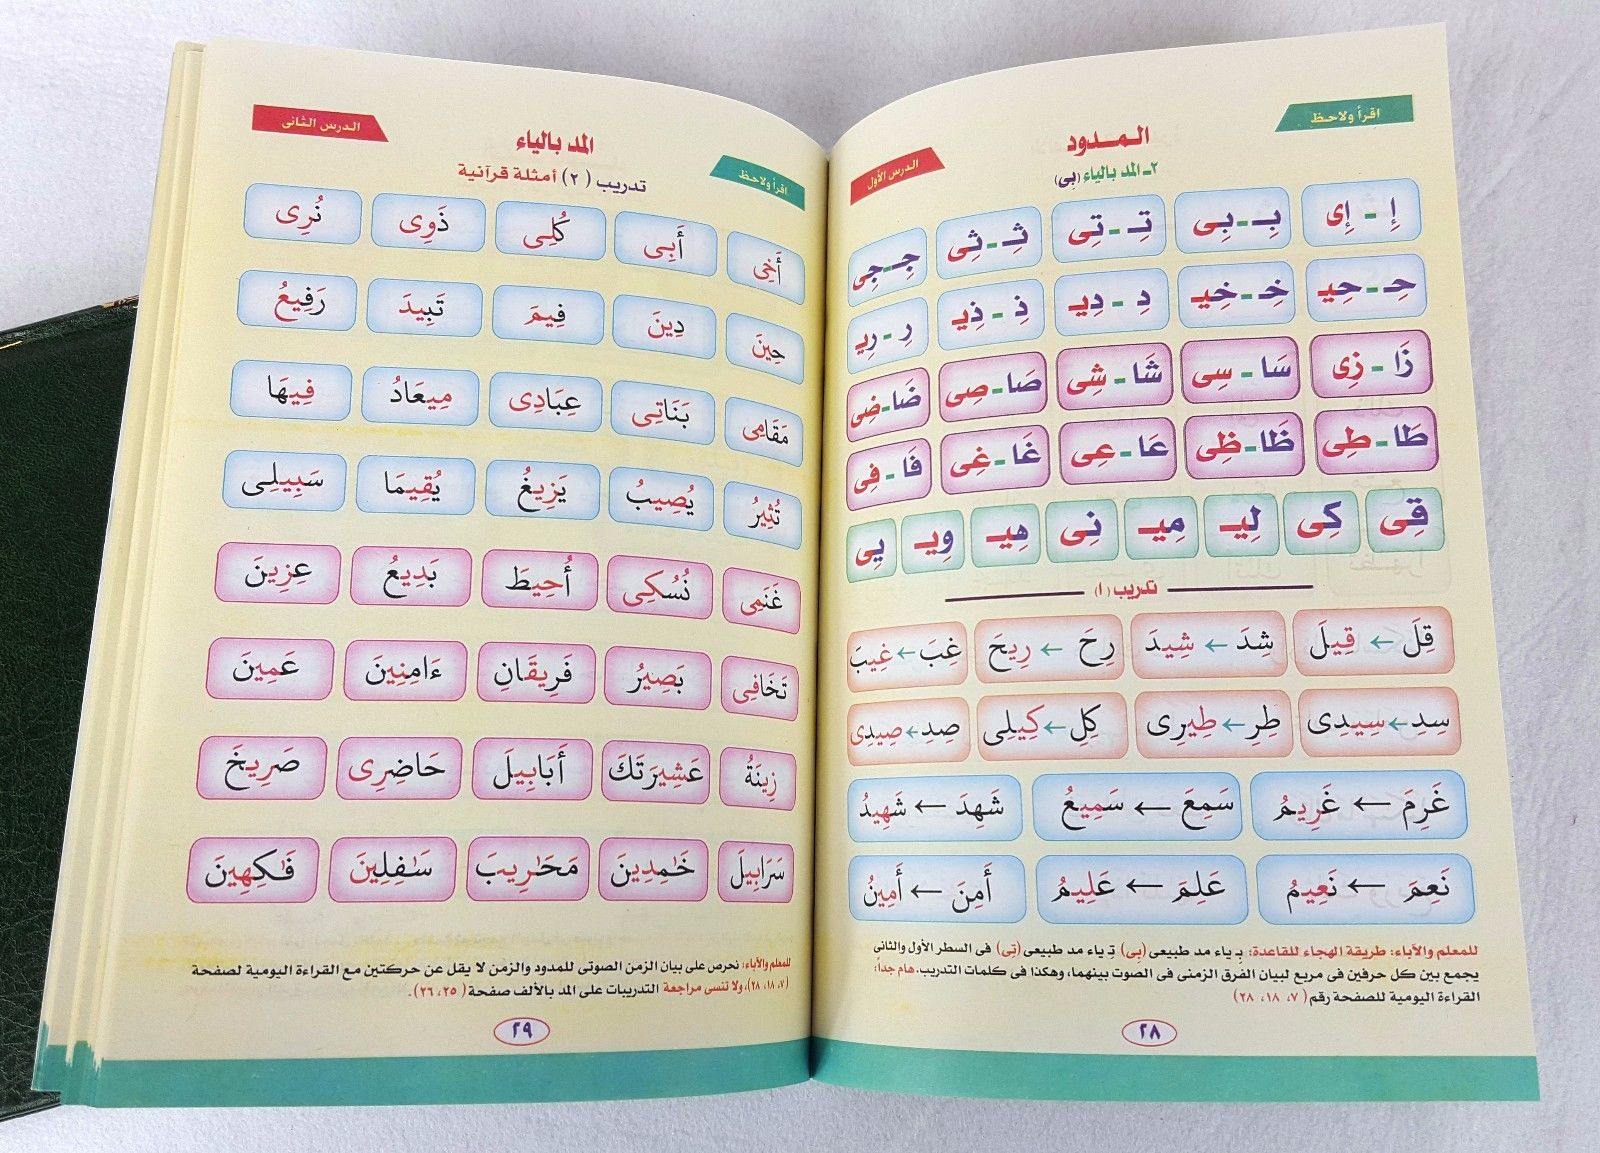 اقرأ ولاحظ
المـــدود
الدرس الأول
٢ـ المد بالياء (بى)
إِ - إِى بِـ - بِى تِـ - تِى ثِـ - ثِى جِـ - جِى
حِـ - حِيـ خِـ - خِيـ دِ - دِيـ ذِ - ذِيـ رِ - رِيـ
زَا - زِى سَا - سِى شَا - شِى صَا - صِى ضَا - ضِى
طَا - طِى ظَا - ظِى عَا - عِى غَا - غِى فَا - فِى
قِى كِى لِيـ مِيـ نِى هِيـ وِيـ يِى
تدريب (١)
قِلَ ← قِيلَ شِدَ ← شِيدَ رِحَ ← رِيحَ غِبَ ← غِيبَ
سِدِ ← سِيدِى طِرِ ← طِيرِى كِلِ ← كِيلِى صِدِ ← صِيدِى
غَرِمَ ← غَرِيمُ سَمِعَ ← سَمِيعُ شَهِدَ ← شَهِيدُ
نَعِمَ ← نَعِيمُ عَلِمَ ← عَلِيمُ أَمِنَ ← أَمِينُ
للمعلم والآباء: طريقة الهجاء للقاعدة: بِـ ياء مد طبيعى (بِى) تِـ ياء مد طبيعى (تِى) فى السطر الأول والثانى
يجمع بين كل حرفين فى مربع لبيان الفرق الزمنى فى الصوت بينهما، وهكذا فى كلمات التدريب. هام جداً:
القراءة اليومية للصفحة رقم (٧، ١٨، ٢٨)
٢٨
الدرس الثانى
المد بالياء
اقرأ ولاحظ
تدريب (٢) أمثلة قرآنية
أَخِى أَبِى كُلِى ذَوِى نُرِى
حِينَ دِينَ فِيمَ تَبِيدَ رَفِيعُ
مَقَامِى بَنَاتِى عِبَادِى مِيعَادُ فِيهَا
تُثِيرُ يُصِيبُ يَزِيغُ يُقِيمَا سَبِيلِى
غَنَمِى نُسُكِى أُحِيطَ بَدِيعُ عِزِينَ
تَخَافِى بَصِيرُ فَرِيقَانِ ءَامِنِينَ عَمِينَ
زِينَةُ عَشِيرَتَكَ أَبَابِيلَ حَاضِرِى صَرِيخَ
سَرَابِيلَ خَٰمِدِينَ مَحَٰرِيبَ سَٰفِلِينَ فَٰكِهِينَ
للمعلم والآباء: نحرص على بيان الزمن الصوتى للمدود والزمن لا يقل عن حركتين مع القراءة اليومية لصفحة
(٧، ١٨، ٢٨)، ولا تنسى مراجعة التدريبات على المد بالألف صفحة (٢٥، ٢٦).
٢٩